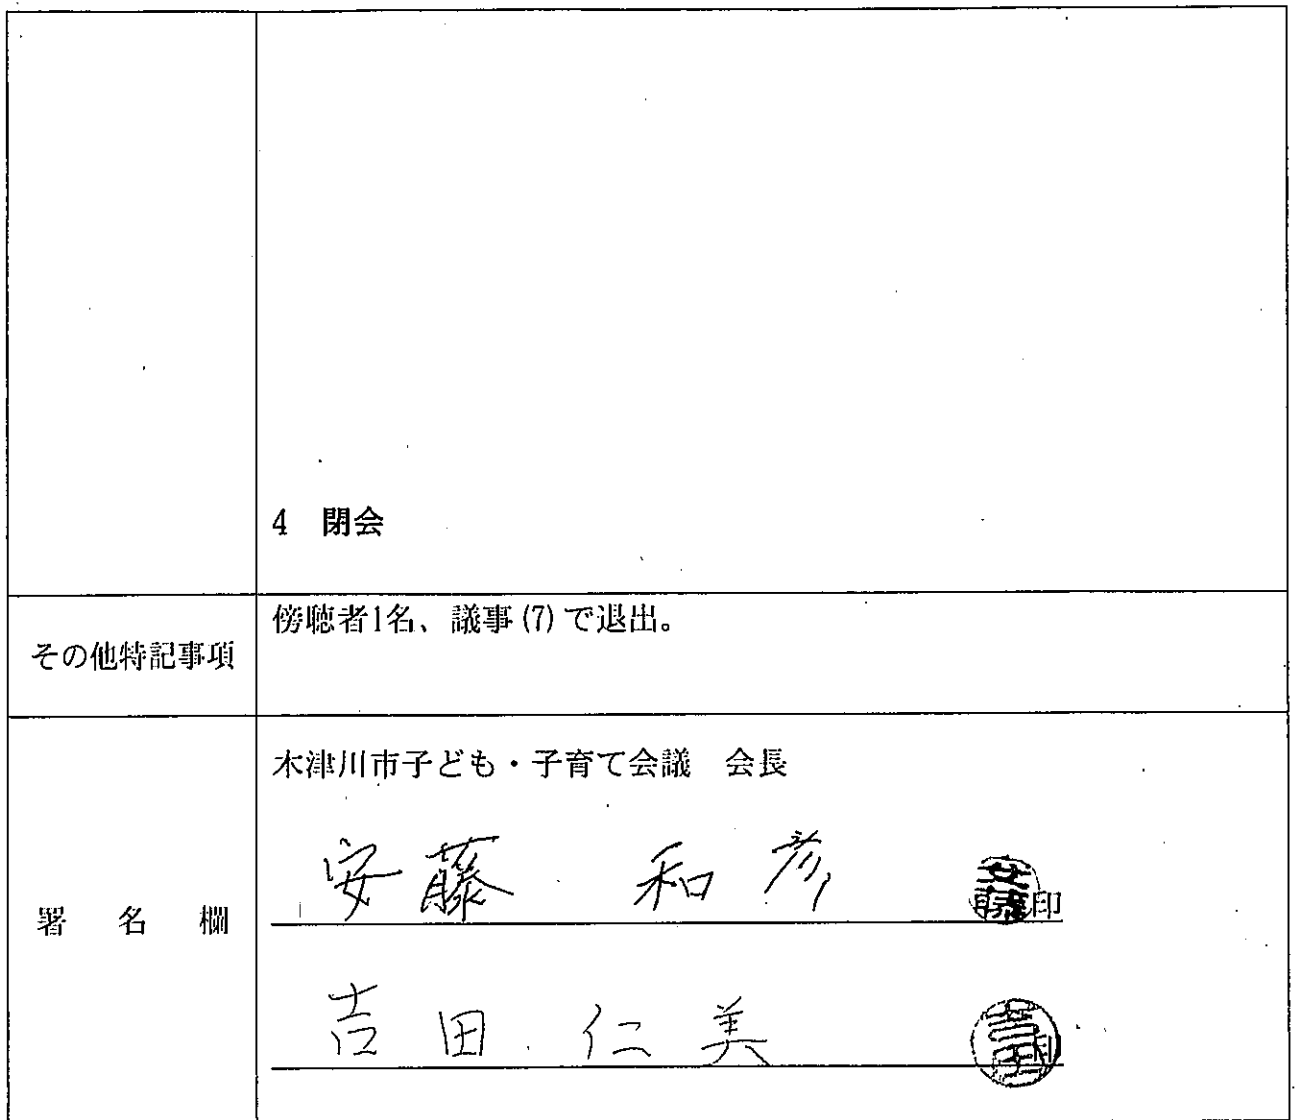 4 閉会
その他特記事項
傍聴者1名、議事(7)で退出。
署名欄
木津川市子ども・子育て会議 会長
安藤 和彦 安藤 印
吉田 仁美 吉田 印